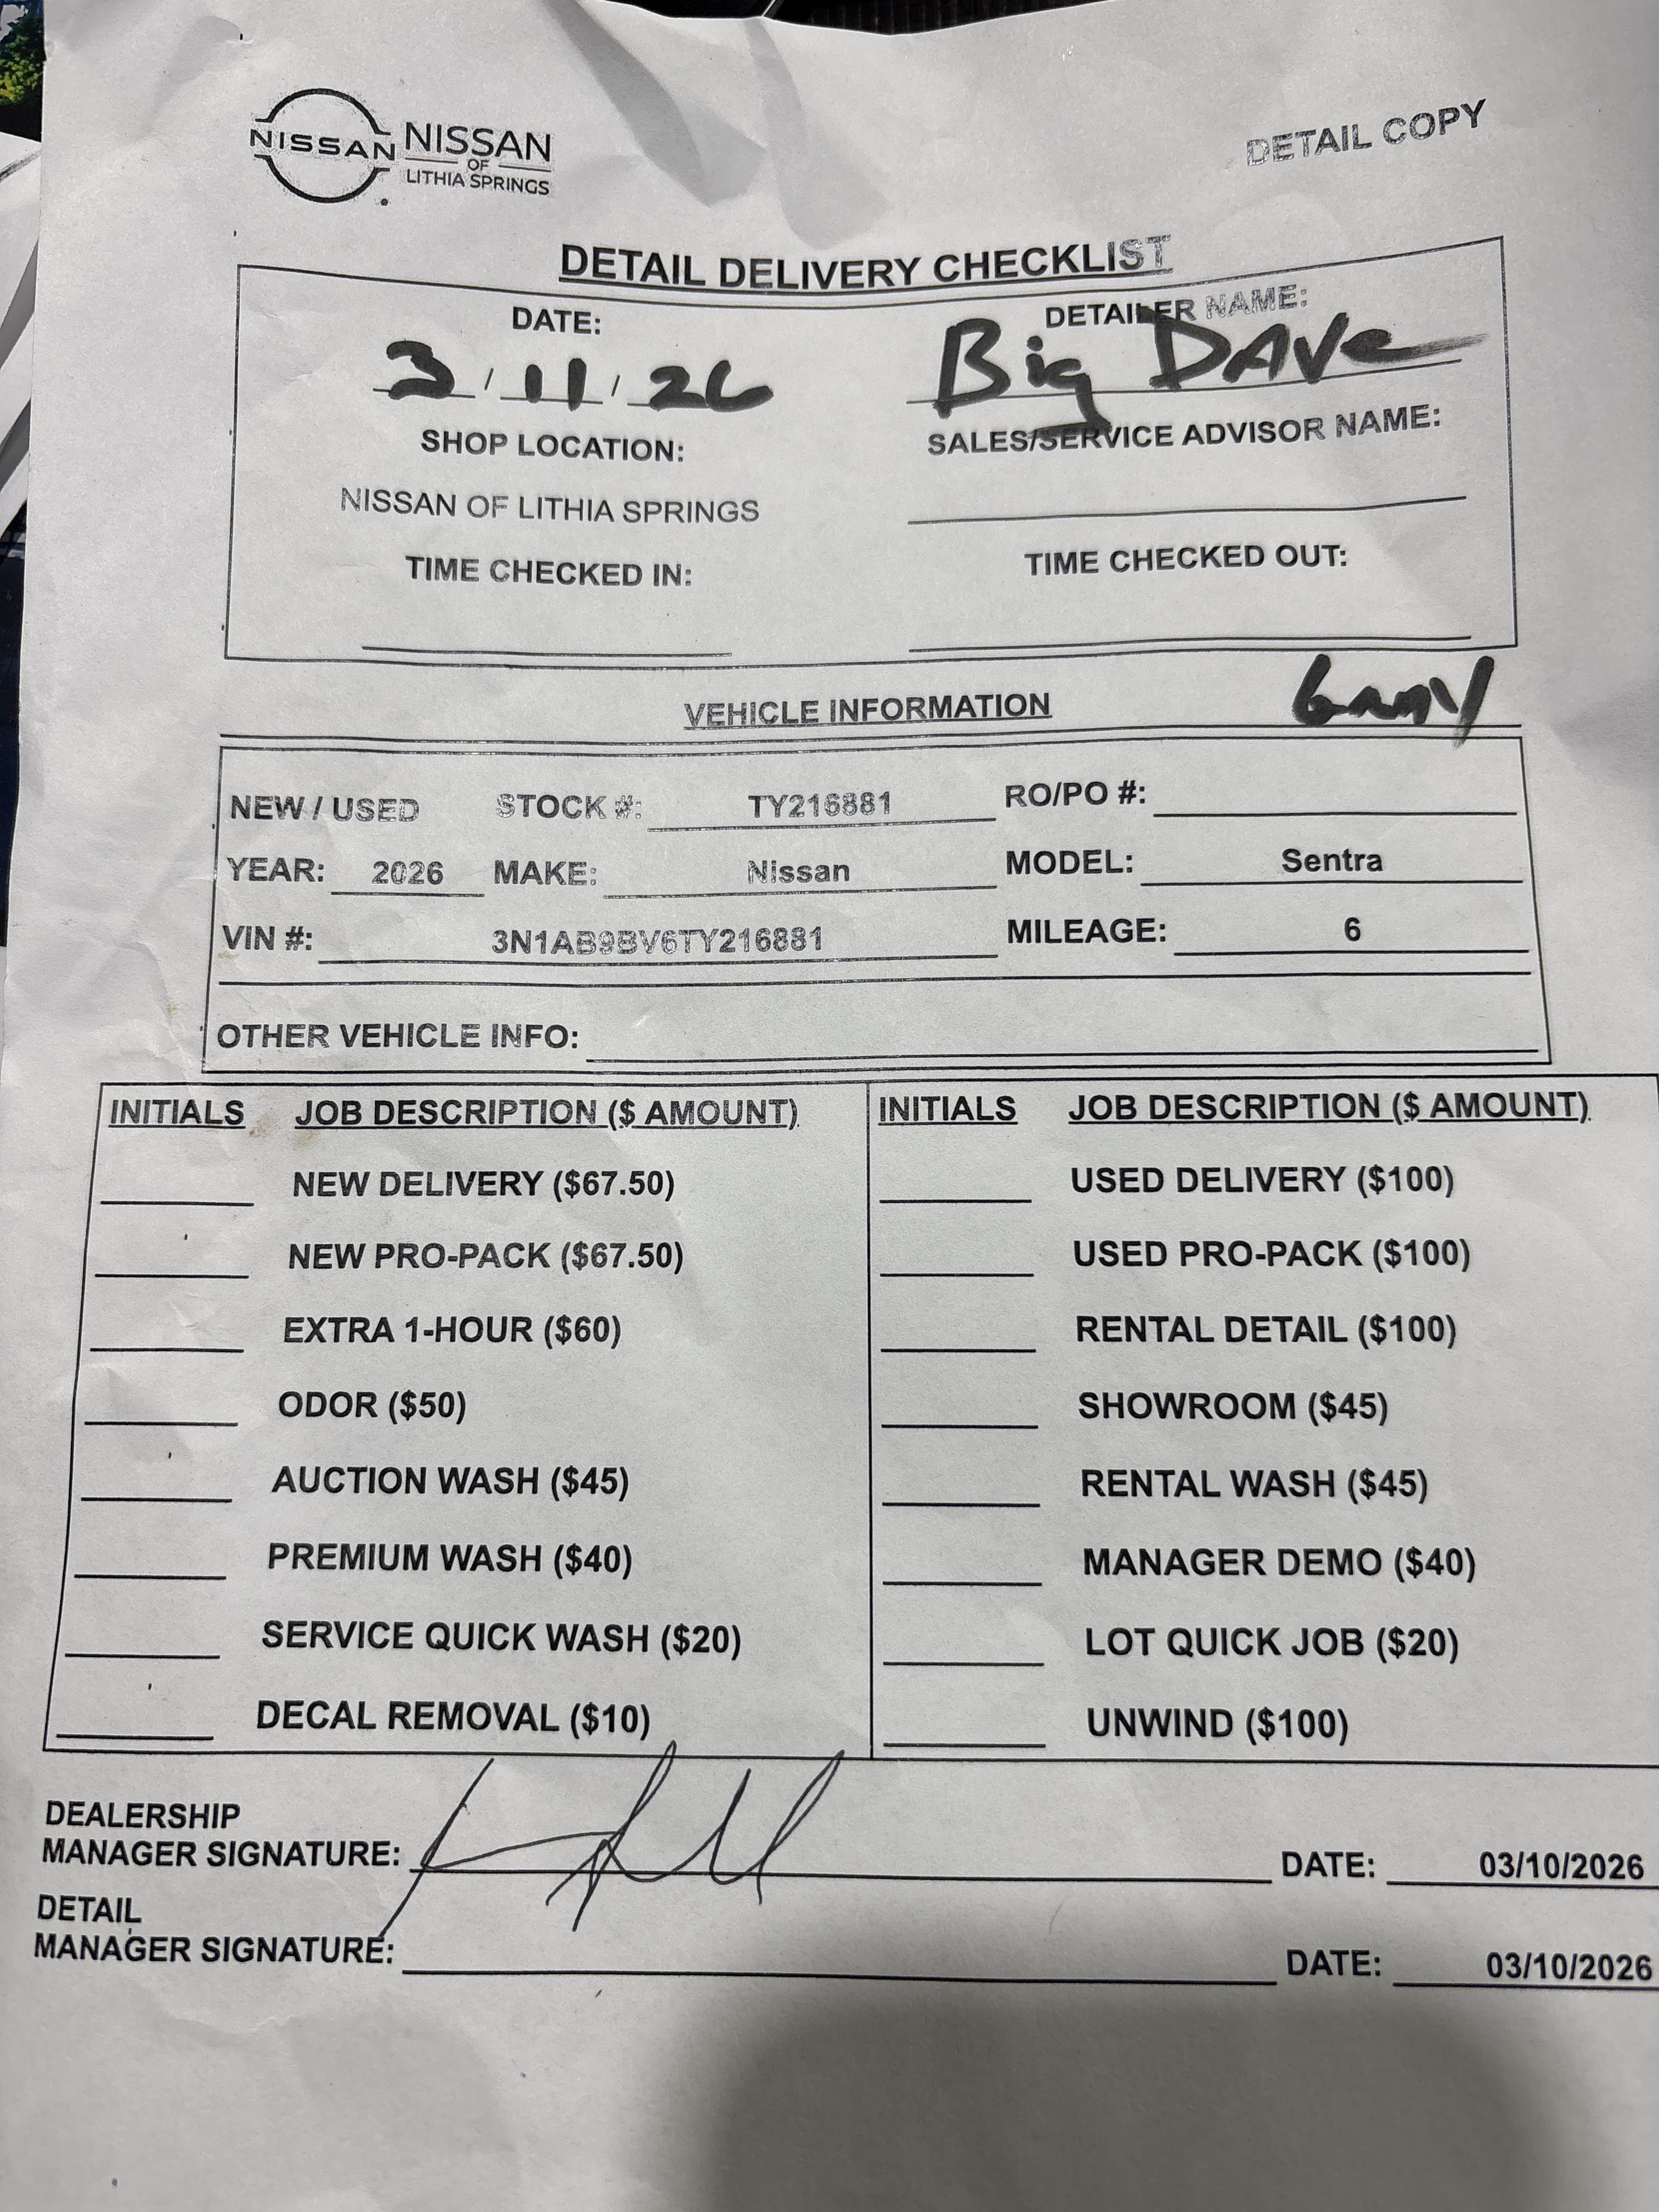 NISSAN NISSAN
OF
LITHIA SPRINGS
DETAIL COPY
DETAIL DELIVERY CHECKLIST
DATE: DETAILER NAME:
3 / 11 / 26 Big DAVe
SHOP LOCATION: SALES/SERVICE ADVISOR NAME:
NISSAN OF LITHIA SPRINGS
TIME CHECKED IN: TIME CHECKED OUT:
VEHICLE INFORMATION Gray
NEW / USED STOCK #: TY216881 RO/PO #:
YEAR: 2026 MAKE: Nissan MODEL: Sentra
VIN #: 3N1AB9BV6TY216881 MILEAGE: 6
OTHER VEHICLE INFO:
INITIALS JOB DESCRIPTION ($ AMOUNT) INITIALS JOB DESCRIPTION ($ AMOUNT)
NEW DELIVERY ($67.50) USED DELIVERY ($100)
NEW PRO-PACK ($67.50) USED PRO-PACK ($100)
EXTRA 1-HOUR ($60) RENTAL DETAIL ($100)
ODOR ($50) SHOWROOM ($45)
AUCTION WASH ($45) RENTAL WASH ($45)
PREMIUM WASH ($40) MANAGER DEMO ($40)
SERVICE QUICK WASH ($20) LOT QUICK JOB ($20)
DECAL REMOVAL ($10) UNWIND ($100)
DEALERSHIP
MANAGER SIGNATURE: DATE: 03/10/2026
DETAIL
MANAGER SIGNATURE: DATE: 03/10/2026